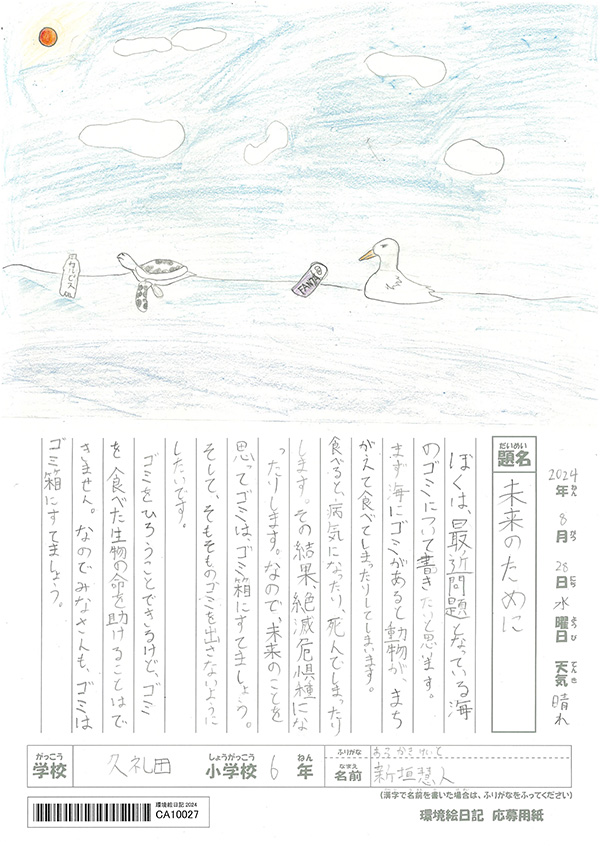 カルピス
FANTA
2024年 8月 28日 水曜日 天気 晴れ
ねん がつ にち ようび てんき
だいめい
題名
未来のために
ぼくは、最近問題となっている海
のゴミについて書きたいと思います。
まず海にゴミがあると動物が、まち
がえて食べてしまったりしてしまいます。
食べると、病気になったり、死んでしまったり
します。その結果、絶滅危惧種にな
ったりします。なので、未来のことを
思ってゴミは、ゴミ箱にすてましょう。
そして、そもそものゴミを出さないように
したいです。
ゴミをひろうことできるけど、ゴミ
を食べた生物の命を助けることはで
きません。なのでみなさんも、ゴミは
ゴミ箱にすてましょう。
がっこう
学校
久礼田
しょうがっこう
小学校
6
ねん
年
ふりがな
あらかきけいと
なまえ
名前
新垣慧人
(漢字で名前を書いた場合は、ふりがなをふってください)
環境絵日記 2024
CA10027
環境絵日記 応募用紙